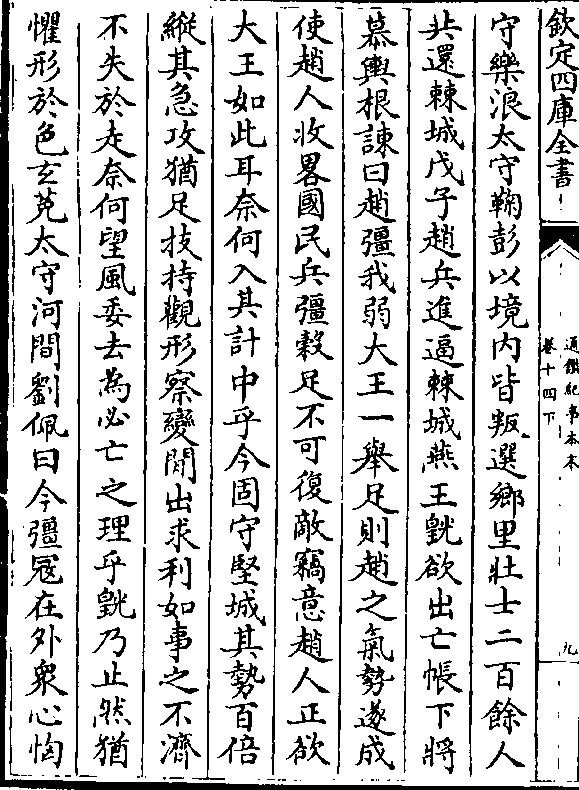 欽定四庫全書
通鑑紀事本末
卷十四下
九
守樂浪太守鞠彭以境内皆叛選鄉里壯士二百餘人
共還棘城戊子趙兵進逼棘城燕王皝欲出亡帳下將
慕輿根諫曰趙彊我弱大王一舉足則趙之氣勢遂成
使趙人收畧國民兵彊穀足不可復敵竊意趙人正欲
大王如此耳奈何入其計中乎今固守堅城其勢百倍
縱其急攻猶足技持觀形察變閒出求利如事之不濟
不失於走奈何望風委去為必亡之理乎皝乃止然猶
懼形於色玄菟太守河間劉佩曰今彊冦在外衆心恟